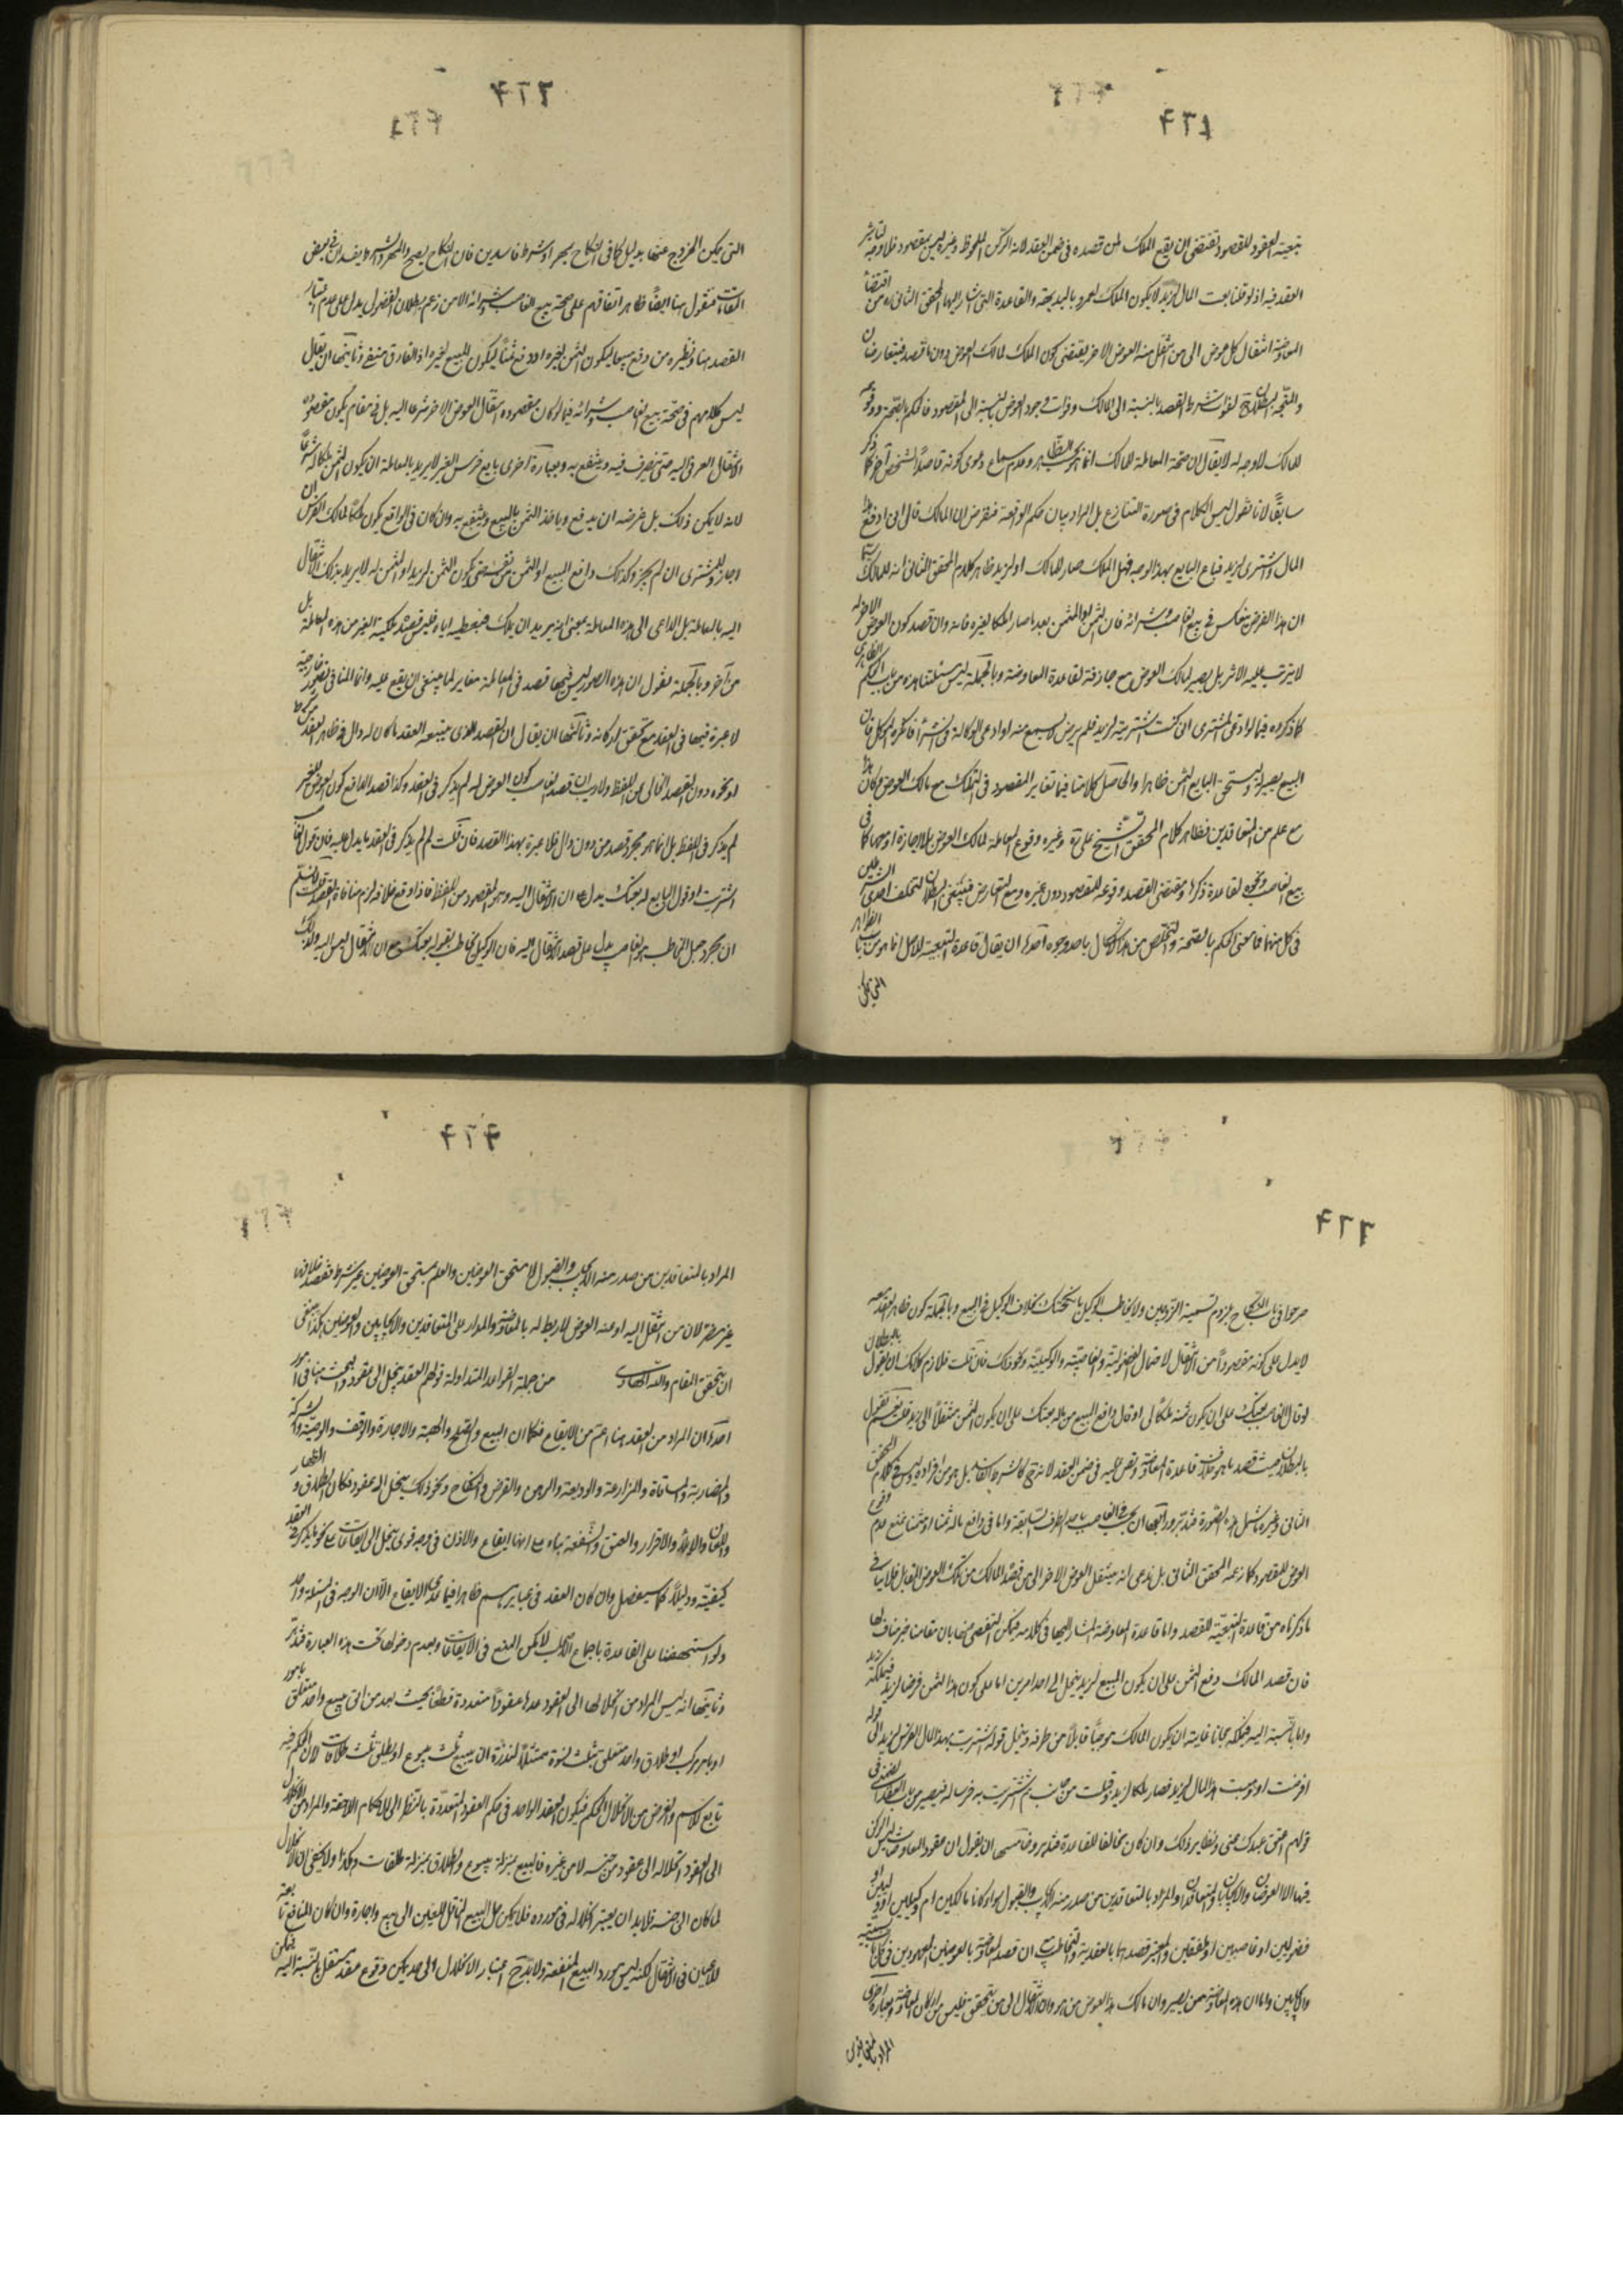 تبعية العقود للقصود تقتضي ان يقع الملك لمن قصده في ضمن العقد لانه الركن الملحوظ وغيره ليس بمقصود فلا وجه لتأثير
العقد فيه اذ لو قلنا بعت المال لزيد لا يكون الملك لعمرو بالبديهة والقاعدة التي اشار اليها المحقق الثاني ره من اقتضاء
المعاوضة انتقال كل عوض الى من انتقل منه العوض الاخر يقتضي كون الملك لمالك العوض دون ما قصد فيتعارضان
والمتجه البطلان لفوات شرط القصد بالنسبة الى المالك وفوات وجود العوض بالنسبة الى المقصود فالحكم بالصحة ووقوعه
للمالك لا وجه له لا يقال ان صحة المعاملة للمالك انما هو بحسب الظاهر وعدم سماع دعوى كونه قاصدا لشخص آخر كما ذكر
سابقا لانا نقول ليس الكلام في صورة التنازع بل المراد بيان حكم الواقعة فنفرض ان المالك قال اني ادفع هذا
المال واشتري لزيد فباع البايع بهذا الوجه فهل الملك صار للمالك او لزيد ظاهر كلام المحقق الثاني انه للمالك
ان هذا الفرض ينعكس في بيع الغاصب وشرائه فان الثمن او المثمن بعد ما صار ملكا لغيره فانه وان قصد كون العوض الاخر له
لا يترتب عليه الاثر بل يصير لمالك العوض مع جازفة لقاعدة المعاوضة وبالجملة ليس مسئلتنا هذه من باب الحكم الظاهري
كما ذكروه فيما لو ادعى المشتري اني كنت اشتريته لزيد فلم يرض البايع منه او ادعى الوكالة في الشراء فانكره الموكل فان
البيع يصير له ويستحق البايع الثمن ظاهرا والحاصل كلامنا فيما تغاير المقصود في التملك مع مالك العوض وكان هذا
مع علم من المتعاقدين فظاهر كلام المحقق الشيخ علي ره وغيره وقوع المعاملة لمالك العوض بلا اجازة او معها كما في
بيع الغاصب ونحوه لقاعدة ذكرها ومقتضى القصد وقوعه للمقصود دون غيره ومع التعارض فينبغي البطلان لتخلف احدى الشرطين
في كل منهما فما معنى الحكم بالصحة والتخلص من هذا الاشكال باحد وجوه احدها ان يقال قاعدة التبعية للاصل انما هو من باب الظواهر
التي يمكن
التي يمكن الخروج عنها بدليل كما في النكاح بمهر او شرط فاسدين فان النكاح يصح والمهر والشرط يفسدان في بعض
المقامات فنقول هنا ايضا ظاهر اتفاقهم على صحة بيع الغاصب وشرائه الا من زعم بطلان الفضولي يدل على عدم اعتبار
القصد هنا ونظيره من دفع مبيعا ليكون الثمن لغيره او دفع ثمنا ليكون المبيع لغيره اذ الفارق منتف وثانيها ان يقال
ليس كلامهم في صحة بيع الغاصب وشرائه فيما لو كان مقصوده انتقال العوض الاخر شرعا اليه بل في مقام يكون مقصوده
الانتقال العرفي اليه حتى يتصرف فيه وينتفع به وبعبارة اخرى بايع فرس الغير لا يريد بالمعاملة ان يكون الثمن ملكا له شرعا
لانه لا يمكن ذلك بل غرضه ان يدفع وياخذ الثمن بالبيع وينتفع به وان كان في الواقع يكون ملكا لمالك الفرس ان
اجاز وللمشتري ان لم يجز وكذلك دافع المبيع او الثمن من نفسه حتى يكون الثمن لزيد او المثمن له لا يريد بذلك الانتقال
اليه بالمعاملة بل الداعي الى هذه المعاملة بمعنى انه يريد ان يملك فيعطيه اياه فليس قصد تمليك الغير من هذه المعاملة بل
من آخر وبالجملة نقول ان هذه الصور ليس فيها قصد في المعاملة مغاير لما ينبغي ان يقع عليه وانما المنافي تصور خارجية
لا عبرة فيها في العقد مع تحقق اركانه وثالثها ان يقال ان القصد الذي يتبعه العقد ما كان له دال في ظاهر العقد من شرط
او نحوه دون القصد الخالي عن اللفظ ولا ريب ان قصد الغاصب كون العوض له لم يذكر في العقد وكذا قصد الدافع كون العوض للغير
لم يذكر في اللفظ بل انما هو مجرد قصد من دون دال فلا عبرة بهذا القصد فان قلت لم لم يذكر في العقد ما يدل عليه فان قول الغاصب
اشتريت او قول البايع له بعتك يدل على ان الانتقال اليه وهو المقصود من اللفظ فاذا وقع خلافه لزم منافاة القصد قلت لا نسلم
ان مجرد جعل المخاطب هو الغاصب يدل على قصد الانتقال اليه فان الوكيل يخاطب بقوله بعتك مع ان الانتقال ليس اليه ولذلك
صرحوا في باب النكاح بلزوم تسمية الزوجين ولا يخاطب الوكيل بانكحتك بخلاف الوكيل في البيع وبالجملة كون ظاهر العقد معه
لا يدل على كونه مقصودا من الانتقال لاحتمال الفضولية والغاصبية والوكيلية ونحو ذلك فان قلت فلازم كلامك ان نقول بالبطلان
لو قال الغاصب بعتك على ان يكون ثمنه ملكا لي او قال دافع المبيع من ماله بعتك على ان يكون الثمن منتقلا الى زيد قلت نعم نقول
بالبطلان حيث قصد ما هو خلاف قاعدة المعاوضة ونص عليه في ضمن العقد لانه كالشرط الفاسد بل هو من افراده وليس في كلام المحقق
الثاني وغيره ما يشمل هذه الصورة فتدبر ورابعها ان يجيب في الغاصب باحد الطرق السابقة واما في دافع ماله ثمنا او مثمنا فنمنع عدم وقوع
العوض للمقصود كما زعمه المحقق الثاني بل ندعي انه ينتقل العوض الاخر الى من قصده المالك من تملك العوض المقابل فلا ينافي
ما ذكرناه من قاعدة التبعية للقصد واما قاعدة المعاوضة المشار اليها في كلامه فيمكن التفصي عنها بان مقامنا غير مناف لها
فان قصد المالك دفع الثمن على ان يكون المبيع لزيد ينحل الى احد امرين اما على كون هذا الثمن قرضا لزيد فيملكه زيد
واما بالنسبة اليه فيملكه مجانا غايته ان يكون المالك موجبا قابلا من طرفه وينحل قوله اشتريت بهذا المال الفرس لزيد الى قوله
اقرضت او وهبت هذا المال لزيد فصار ملكا لزيد وقبلت من جانبه ثم اشتريت به فرسا له فيصير من باب العقد الضمني في
قولهم اعتق عبدك عني ونظاير ذلك وان كان مخالفا للقاعدة فتدبر وخامسها ان يقول ان عقود المعاوضات ليس الركن
فيها الا العوضان والايجابان والمتعاقدان والمراد بالمتعاقدين من صدر منه الايجاب والقبول سواء كانا مالكين ام وكيلين او وليين او
فضوليين او غاصبين او ملفقين والمعتبر قصدهما بالعقدية والتخاطب ان قصد المعاوضة بالعوضين المعهودين في كل
والايجابين واما ان هذه المعاوضة لمن يصير وان مالك هذا العوض من هو وان الانتقال الى من يتحقق فليس من اركان المعاوضة وبعبارة اخرى
المراد بالمتعاقدين من صدر منه الايجاب والقبول لا مستحق العوضين والعلم بمستحق العوضين غير شرط فقصد خلافها
غير مضر لان من انتقل اليه او عنه العوض لا ربط له بالمعاوضة والمدار على المتعاقدين والايجابين والعوضين هكذا ينبغي
ان يحقق المقام والله الهادي من جملة القواعد المتداولة قولهم العقد ينحل الى عقود والبحث هنا في امور
احدها ان المراد من العقد هنا اعم من الايقاع فكما ان البيع والصلح والهبة والاجارة والوقف والوصية والشركة
والمضاربة والمساقاة والمزارعة والوديعة والرهن والقرض والنكاح ونحو ذلك ينحل الى عقود فكذا الطلاق والظهار
واللعان والايلاء والاقرار والعتق والشفعة بناء على انها ايقاع والاذن في وجه قوي ينحل الى ايقاعات على نحو ما يذكر في العقد
كيفيته ودليلا كما سيفصل وان كان العقد في عبايرهم ظاهرا فيما عدى الايقاع الا ان الوجه في المسئلة واحد
ولو استنهضنا على القاعدة باجماع الاصحاب لامكن المنع في الايقاعات وبعدم دخولها تحت هذه العبارة فتدبر
وثانيها انه ليس المراد من انحلالها الى العقود عدها عقودا متعددة قطعا بحيث يعد من اتى ببيع واحد متعلق بامور
او بامر مركب او طلاق واحد متعلق بثلث نسوة ممتثلا لنذره ان يبيع ثلث بيوع او يطلق ثلث طلاقات لان الحكم فيه
تابع للاسم والغرض من الانحلال الحكم فيكون العقد الواحد في حكم العقود المتعددة بالنظر الى الاحكام اللاحقة والمراد من الانحلال
الى العقود انحلاله الى عقود من جنسه لا من غيره فالبيع بمنزلة بيوع والطلاق بمنزلة طلقات وهكذا ولا يخفى ان الانحلال
لما كان الى جنسه فلا بد ان يعتبر انحلاله في مورده فلا يمكن حل البيع الناقل للعين الى بيع واجارة وان كان المنافع تابعة
للاعيان في الانتقال لكنه ليس مورد البيع المنفعة ولا بد من اعتبار الانحلال الى حد يمكن وقوع عقد مستقل بالنسبة اليه فيمكن